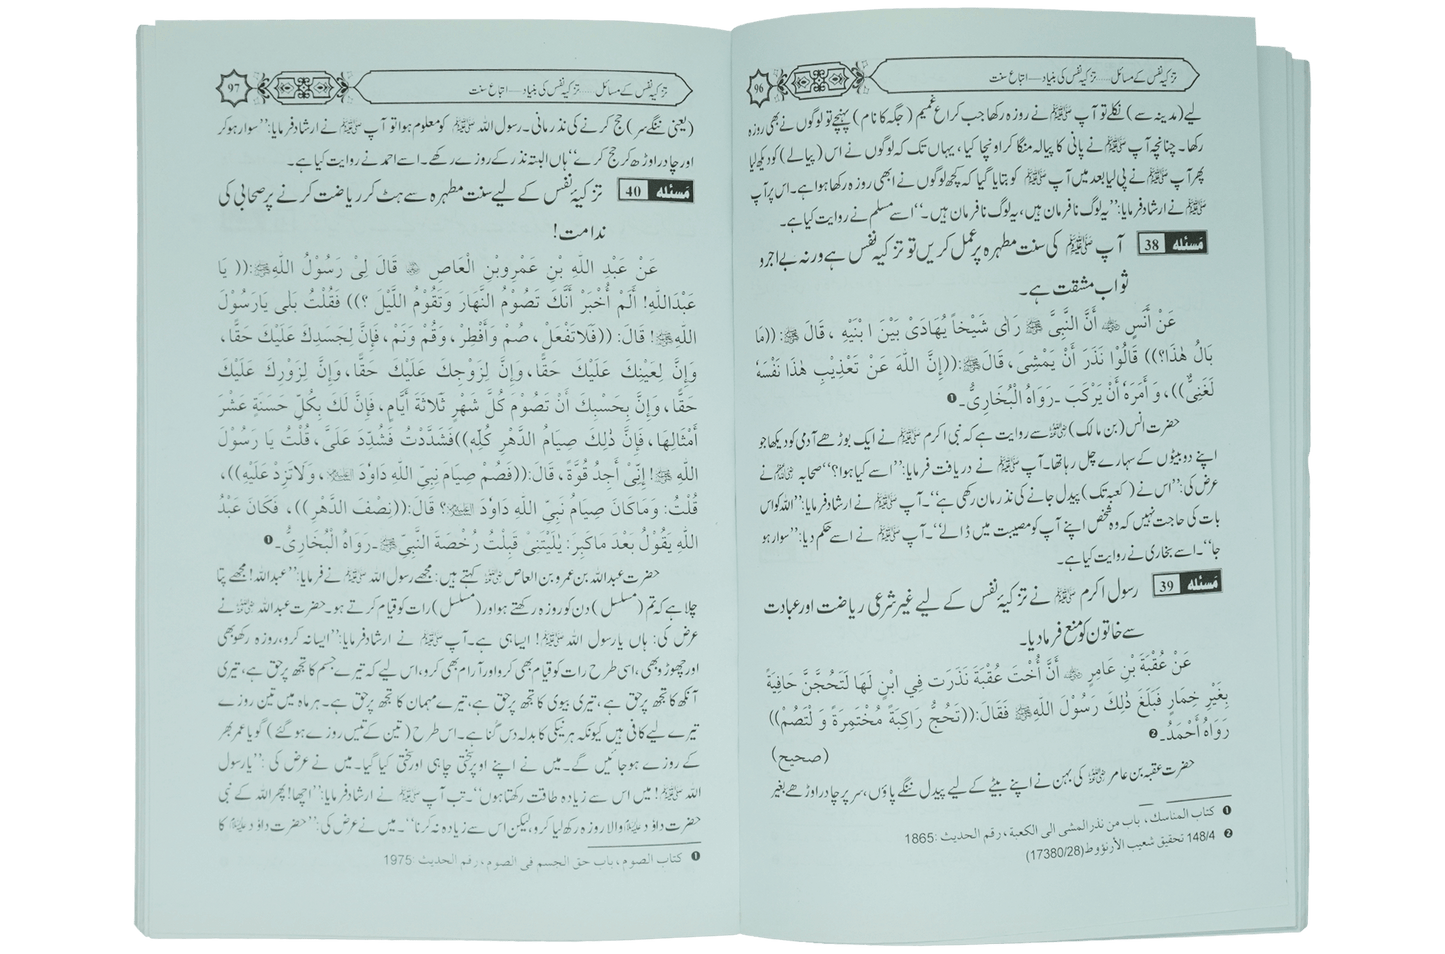 تزکیہ نفس کے مسائل..... تزکیہ نفس کی بنیاد — اتباع سنت
96
لیے (مدینہ سے) نکلے تو آپ ﷺ نے روزہ رکھا جب کراع غمیم (جگہ کا نام) پہنچے تو لوگوں نے بھی روزہ
رکھا۔ چنانچہ آپ ﷺ نے پانی کا پیالہ منگا کر اونچا کیا، یہاں تک کہ لوگوں نے اس (پیالے) کو دیکھ لیا
پھر آپ ﷺ نے پی لیا بعد میں آپ ﷺ کو بتایا گیا کہ کچھ لوگوں نے ابھی روزہ رکھا ہوا ہے۔ اس پر آپ
ﷺ نے ارشاد فرمایا: ’’یہ لوگ نافرمان ہیں، یہ لوگ نافرمان ہیں۔‘‘ اسے مسلم نے روایت کیا ہے۔
مَسئله 38 آپ ﷺ کی سنت مطہرہ پر عمل کریں تو تزکیہ نفس ہے ورنہ بے اجر و
ثواب مشقت ہے۔
عَنْ أَنَسٍ ؓ أَنَّ النَّبِیَّ ﷺ رَاٰی شَیْخاً یُهَادٰی بَیْنَ ابْنَیْهِ، قَالَ ﷺ: ((مَا
بَالُ هٰذَا؟)) قَالُوْا نَذَرَ أَنْ یَمْشِیَ، قَالَ ﷺ: ((إِنَّ اللّٰهَ عَنْ تَعْذِیْبِ هٰذَا نَفْسَهٗ
لَغَنِیٌّ))، وَ أَمَرَهٗ أَنْ یَرْكَبَ ۔ رَوَاهُ الْبُخَارِیُّ۔ ❶
حضرت انس (بن مالک) ؓ سے روایت ہے کہ نبی اکرم ﷺ نے ایک بوڑھے آدمی کو دیکھا جو
اپنے دو بیٹوں کے سہارے چل رہا تھا۔ آپ ﷺ نے دریافت فرمایا: ’’اسے کیا ہوا؟‘‘ صحابہ ؓ نے
عرض کی: ’’اس نے (کعبہ تک) پیدل جانے کی نذر مان رکھی ہے‘‘۔ آپ ﷺ نے ارشاد فرمایا: ’’اللہ کو اس
بات کی حاجت نہیں کہ وہ شخص اپنے آپ کو مصیبت میں ڈالے‘‘۔ آپ ﷺ نے اسے حکم دیا: ’’سوار ہو
جا‘‘۔ اسے بخاری نے روایت کیا ہے۔
مَسئله 39 رسول اکرم ﷺ نے تزکیۂ نفس کے لیے غیر شرعی ریاضت اور عبادت
سے خاتون کو منع فرما دیا۔
عَنْ عُقْبَةَ بْنِ عَامِرٍ ؓ أَنَّ أُخْتَ عُقْبَةَ نَذَرَت فِي ابْنٍ لَهَا لَتَحُجَّنَّ حَافِيَةً
بِغَيْرِ خِمَارٍ فَبَلَغَ ذٰلِكَ رَسُوْلَ اللّٰهِ ﷺ فَقَالَ: ((تَحُجُّ رَاكِبَةً مُخْتَمِرَةً وَ لْتَصُمْ))
رَوَاهُ أَحْمَدُ۔ ❷
(صحیح)
حضرت عقبہ بن عامر ؓ کی بہن نے اپنے بیٹے کے لیے پیدل ننگے پاؤں، سر پر چادر اوڑھے بغیر
❶ کتاب المناسک، باب من نذر المشی الی الکعبة، رقم الحدیث: 1865
❷ 148/4 تحقیق شعیب الأرنؤوط (17380/28)
تزکیہ نفس کے مسائل..... تزکیہ نفس کی بنیاد — اتباع سنت
97
(یعنی ننگے سر) حج کرنے کی نذر مانی۔ رسول اللہ ﷺ کو معلوم ہوا تو آپ ﷺ نے ارشاد فرمایا: ’’سوار ہو کر
اور چادر اوڑھ کر حج کرے‘‘ ہاں البتہ نذر کے روزے رکھے۔ اسے احمد نے روایت کیا ہے۔
مَسئله 40 تزکیۂ نفس کے لیے سنت مطہرہ سے ہٹ کر ریاضت کرنے پر صحابی کی
ندامت!
عَنْ عَبْدِ اللّٰهِ بْنِ عَمْرِو بْنِ الْعَاصِ ؓ قَالَ لِیْ رَسُوْلُ اللّٰهِ ﷺ: (( یَا
عَبْدَاللّٰهِ! أَلَمْ أُخْبَرْ أَنَّكَ تَصُوْمُ النَّهَارَ وَتَقُوْمُ اللَّیْلَ؟)) فَقُلْتُ بَلٰی یَارَسُوْلَ
اللّٰهِ ﷺ! قَالَ: ((فَلَاتَفْعَلْ، صُمْ وَأَفْطِرْ، وَقُمْ وَنَمْ، فَإِنَّ لِجَسَدِكَ عَلَیْكَ حَقًّا،
وَإِنَّ لِعَیْنِكَ عَلَیْكَ حَقًّا، وَإِنَّ لِزَوْجِكَ عَلَیْكَ حَقًّا، وَإِنَّ لِزَوْرِكَ عَلَیْكَ
حَقًّا، وَإِنَّ بِحَسْبِكَ أَنْ تَصُوْمَ كُلَّ شَهْرٍ ثَلَاثَةَ أَیَّامٍ، فَإِنَّ لَكَ بِكُلِّ حَسَنَةٍ عَشْرَ
أَمْثَالِهَا، فَإِنَّ ذٰلِكَ صِیَامُ الدَّهْرِ كُلِّهٖ)) فَشَدَّدْتُ فَشُدِّدَ عَلَیَّ، قُلْتُ یَا رَسُوْلَ
اللّٰهِ ﷺ! إِنِّیْ أَجِدُ قُوَّةً، قَالَ: ((فَصُمْ صِیَامَ نَبِیِّ اللّٰهِ دَاوٗدَ ؑ، وَلَاتَزِدْ عَلَیْهِ))،
قُلْتُ: وَمَاكَانَ صِیَامُ نَبِیِّ اللّٰهِ دَاوٗدَ ؑ؟ قَالَ: ((نِصْفَ الدَّهْرِ))، فَكَانَ عَبْدُ
اللّٰهِ یَقُوْلُ بَعْدَ مَاكَبِرَ: یٰلَیْتَنِیْ قَبِلْتُ رُخْصَةَ النَّبِیِّ ﷺ۔ رَوَاهُ الْبُخَارِیُّ۔ ❶
حضرت عبداللہ بن عمرو بن العاص ؓ کہتے ہیں: مجھے رسول اللہ ﷺ نے فرمایا: ’’عبداللہ! مجھے پتا
چلا ہے کہ تم (مسلسل) دن کو روزہ رکھتے ہو اور (مسلسل) رات کو قیام کرتے ہو۔ حضرت عبداللہ ؓ نے
عرض کی: ہاں یا رسول اللہ ﷺ! ایسا ہی ہے۔ آپ ﷺ نے ارشاد فرمایا: ’’ایسا نہ کرو، روزہ رکھو بھی
اور چھوڑو بھی، اسی طرح رات کو قیام بھی کرو اور آرام بھی کرو، اس لیے کہ تیرے جسم کا تجھ پر حق ہے، تیری
آنکھ کا تجھ پر حق ہے، تیری بیوی کا تجھ پر حق ہے، تیرے مہمان کا تجھ پر حق ہے۔ ہر ماہ میں تین روزے
تیرے لیے کافی ہیں کیونکہ ہر نیکی کا بدلہ دس گنا ہے۔ اس طرح (تین کے تیس روزے ہو گئے) گویا عمر بھر
کے روزے ہو جائیں گے۔ میں نے اپنے اوپر سختی چاہی اور سختی کیا گیا۔ میں نے عرض کی: ’’یا رسول
اللہ ﷺ! میں اس سے زیادہ طاقت رکھتا ہوں‘‘۔ تب آپ ﷺ نے ارشاد فرمایا: ’’اچھا! پھر اللہ کے نبی
حضرت داؤد ؑ والا روزہ رکھ لیا کرو، لیکن اس سے زیادہ نہ کرنا‘‘۔ میں نے عرض کی: ’’حضرت داؤد ؑ کا
❶ کتاب الصوم، باب حق الجسم فی الصوم، رقم الحدیث: 1975